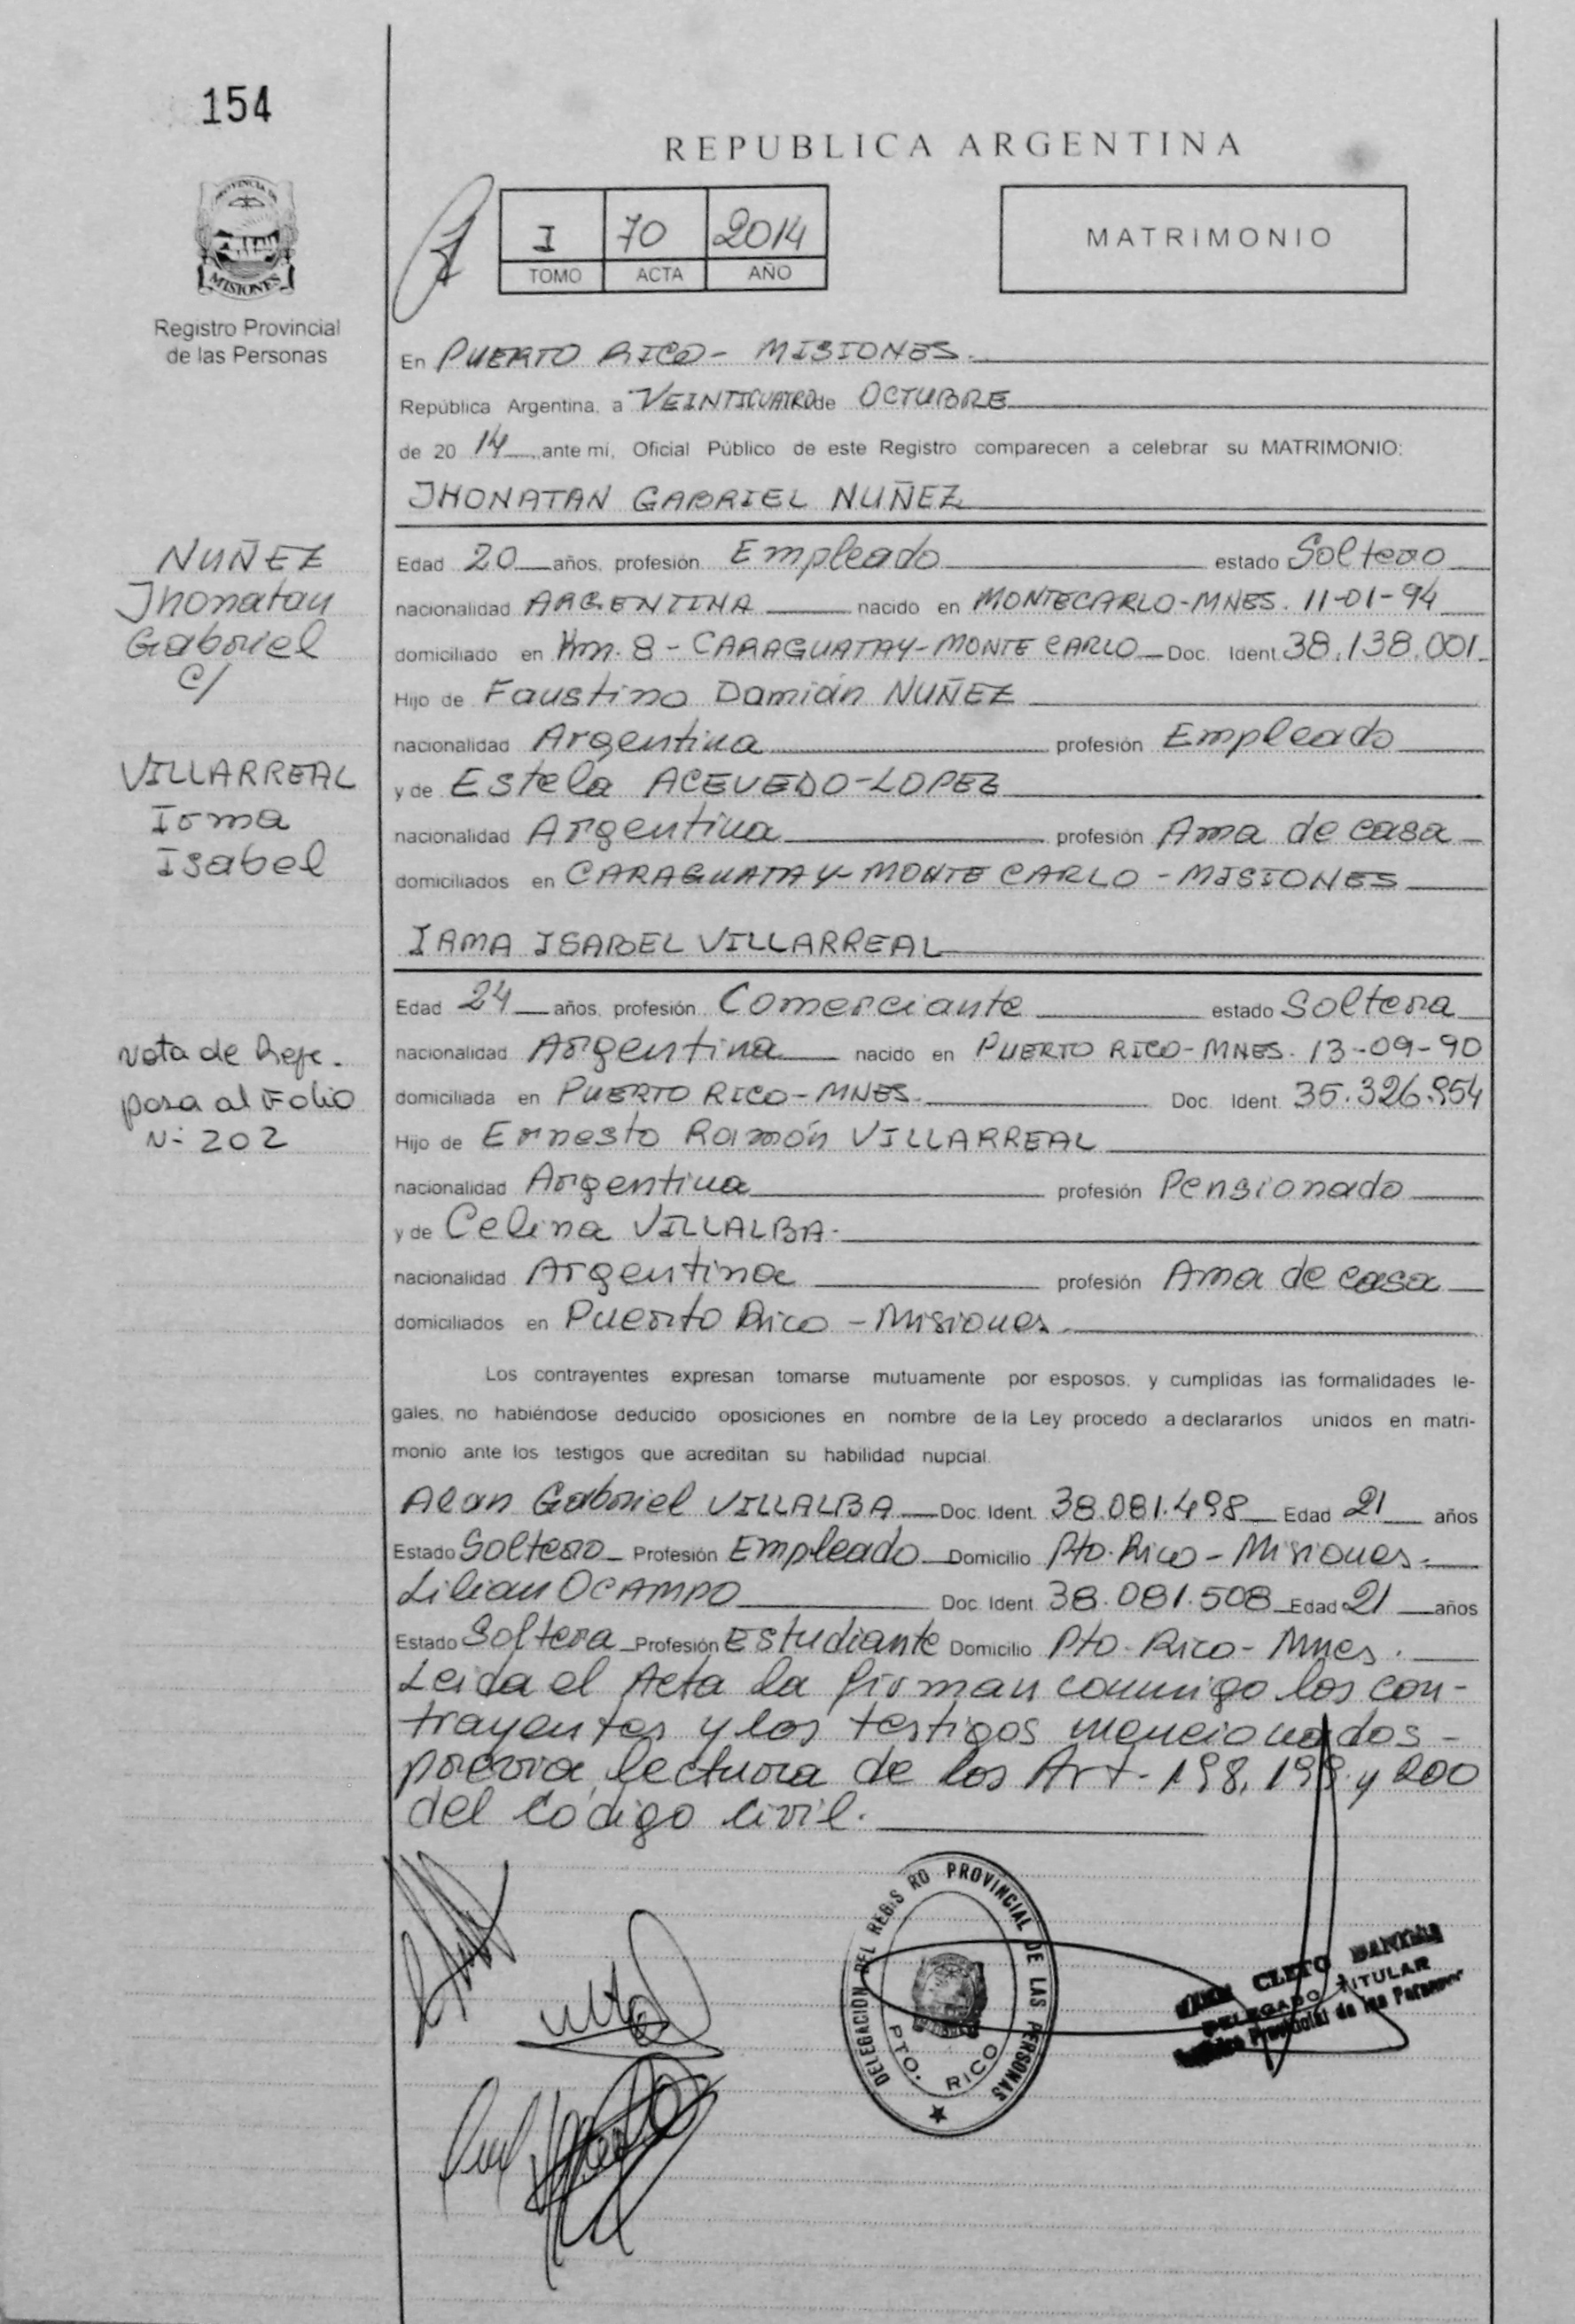 154
REPUBLICA ARGENTINA
PROVINCIA DE
MISIONES
Registro Provincial
de las Personas
I 70 2014
TOMO ACTA AÑO
MATRIMONIO
En PUERTO RICO - MISIONES.
República Argentina, a VEINTICUATRO de OCTUBRE
de 20 14 ante mí, Oficial Público de este Registro comparecen a celebrar su MATRIMONIO:
JHONATAN GABRIEL NUÑEZ
NUÑEZ
Jhonatan
Gabriel
C/
VILLARREAL
Irma
Isabel
Edad 20 años, profesión Empleado estado Soltero
nacionalidad ARGENTINA nacido en MONTECARLO-MNES. 11-01-94
domiciliado en Km. 8 - CARAGUATAY-MONTE CARLO Doc. Ident. 38.138.001
Hijo de Faustino Damián NUÑEZ
nacionalidad Argentina profesión Empleado
y de Estela ACEVEDO-LOPEZ
nacionalidad Argentina profesión Ama de casa
domiciliados en CARAGUATAY-MONTE CARLO - MISIONES
IRMA ISABEL VILLARREAL
Edad 24 años, profesión Comerciante estado Soltera
nacionalidad Argentina nacido en PUERTO RICO-MNES. 13-09-90
domiciliada en PUERTO RICO-MNES. Doc. Ident. 35.326.954
Hijo de Ernesto Ramón VILLARREAL
nacionalidad Argentina profesión Pensionado
y de Celina VILLALBA.
nacionalidad Argentina profesión Ama de casa
domiciliados en Puerto Rico - Misiones.
Nota de Refe.
pasa al Folio
Nº 202
Los contrayentes expresan tomarse mutuamente por esposos, y cumplidas las formalidades le-
gales, no habiéndose deducido oposiciones en nombre de la Ley procedo a declararlos unidos en matri-
monio ante los testigos que acreditan su habilidad nupcial.
Alan Gabriel VILLALBA Doc. Ident. 38.081.498 Edad 21 años
Estado Soltero Profesión Empleado Domicilio Pto. Rico - Misiones.
Lilian OCAMPO Doc. Ident. 38.081.508 Edad 21 años
Estado Soltera Profesión Estudiante Domicilio Pto. Rico - Mnes.
Leida el Acta la firman conmigo los con-
trayentes y los testigos mencionados -
previa lectura de los Art. 198, 199 y 200
del Código Civil.
DELEGACION DEL REGISRO PROVINCIAL DE LAS PERSONAS
PTO. RICO
CLETO
DELEGADO TITULAR
Provincial de las Personas